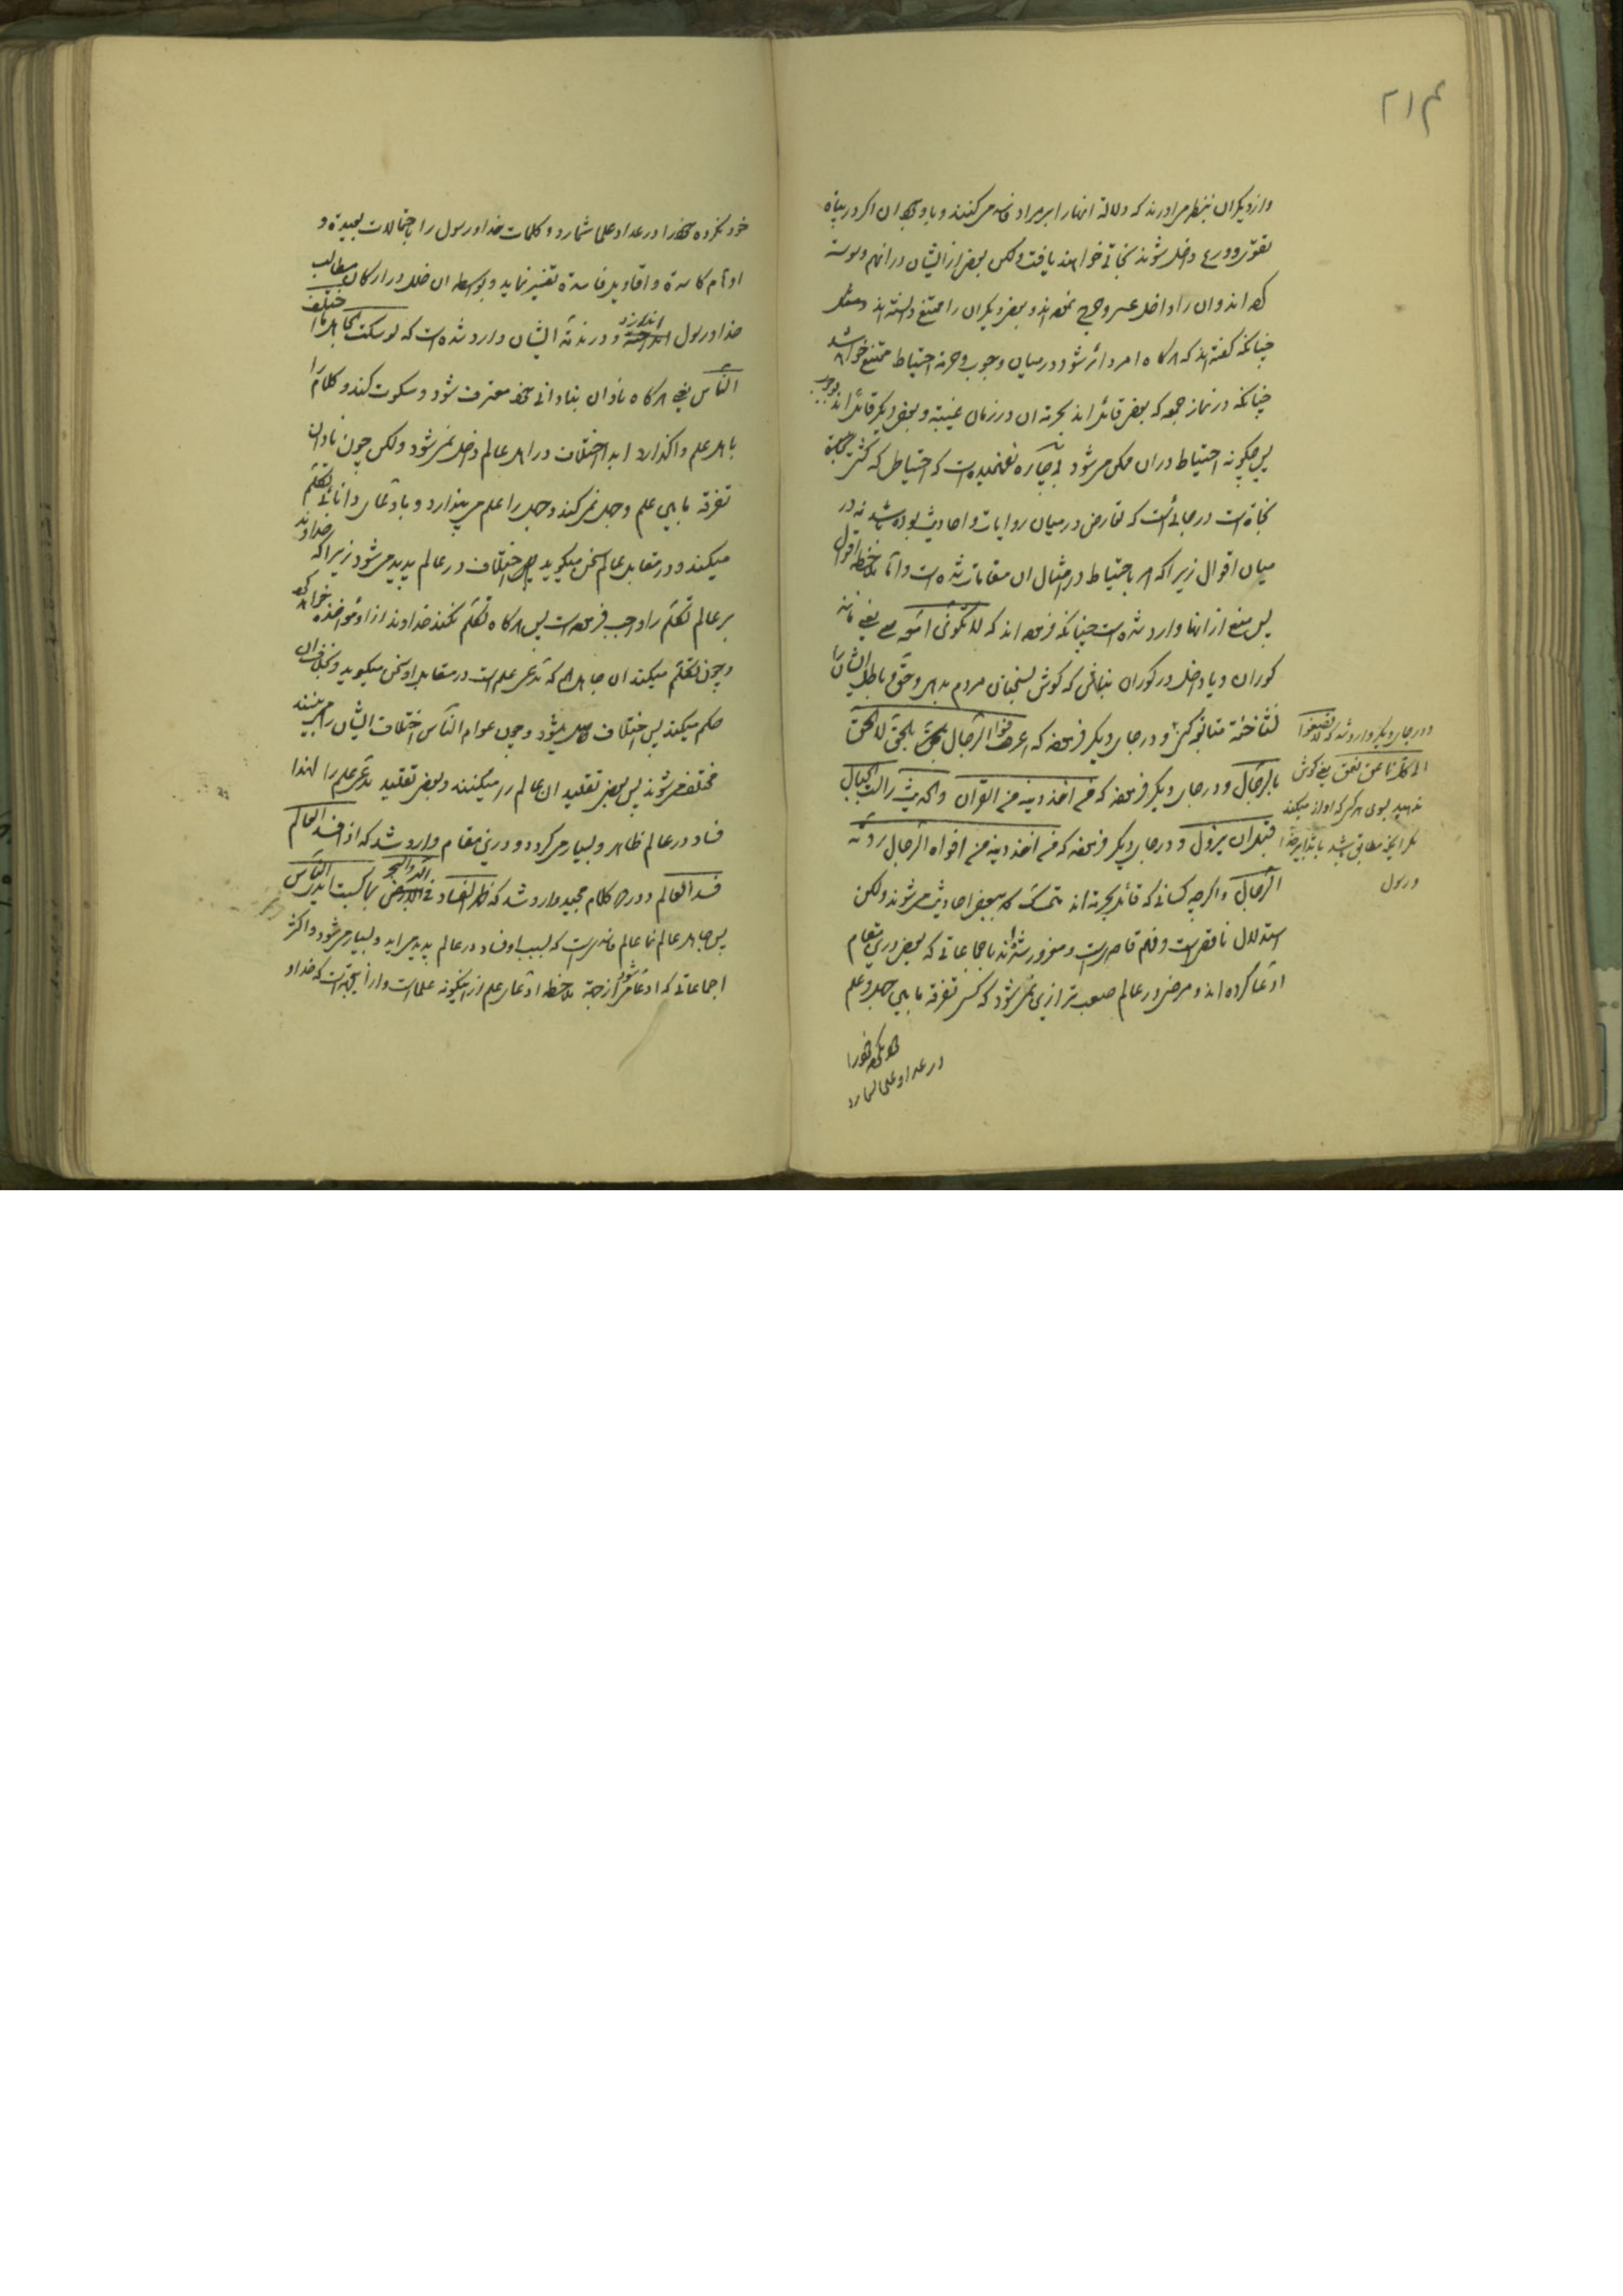 ۲۱۴
و از دیگران بنظر می‌آورند که دلالة آنها را بر مراد فاسد میکنند و با وجود آن اگر در پناه
تقوی و ورع داخل شوند نجاتی خواهند یافت ولکن بعضی از ایشان در آنهم وسوسه
کرده‌اند و آن را داخل عسر و حرج نموده‌اند و بعضی دیگر آن را ممتنع دانسته‌اند
چنانکه گفته‌اند که هرگاه امر دائر شود در میان وجوب و حرمة احتیاط ممتنع خواهد شد
چنانکه در نماز جمعه که بعضی قائل‌اند بحرمة آن در زمان غیبة و بعضی دیگر قائل‌اند بوجوب
پس چگونه احتیاط در آن ممکن می‌شود بیچاره نفهمیده است که احتیاطی که کشتی نجاة
نجاة است در جائی است که تعارض در میان روایات و احادیث بوده باشد نه در
میان اقوال زیرا که امر باحتیاط در امثال آن مقامات شده است و اما ملاحظه اقوال
پس منع از آنها وارد شده است چنانکه فرموده‌اند که لا تکونن امعه یعنی مانند
کوران و یا داخل در کوران نباش که گوش بسخنان مردم بدهی و حق و باطل ایشان را
نشناخته متابعت کنی و در جای دیگر فرموده که اعرفوا الرجال بالحق لا الحق
بالرجال و در جای دیگر فرموده که من اخذ دینه من القرآن والحدیث زالت الجبال
قبل ان یزول و در جای دیگر فرموده که من اخذ دینه من افواه الرجال ردّته
الرجال و اگرچه کسانی که قائل بحرمة‌اند متمسک ببعض احادیث می‌شوند ولکن
استدلال ناقص است و فهم قاصر است و مغرور شده‌اند باجماعاتی که بعضی در این مقام
ادعا کرده‌اند و مرضی در عالم صعب‌تر از این نمی‌شود که کسی تفرقه مابین جهل و علم
خود نکرده خود را
در عداد علما شمارد
و در جای دیگر وارد شده که لا تصغوا
الی کل ناعق نعق یعنی گوش
ندهید بسوی هر کس که آواز میکند
مگر آنچه مطابق باشد با
و رسول
خود نکرده خود را در عداد علما شمارد و کلمات خدا و رسول را باحتمالات بعیده و
اوهام کاسده و اقاویل فاسده تفسیر نماید و بواسطه آن خلل در ارکان مطالب
خدا و رسول اندازد و در مذمة ایشان وارد شده است که لو سکت الجاهل ما اختلف
الناس یعنی هرگاه نادان بنادانی خود معترف شود و سکوت کند و کلام را
باهل علم واگذارد ابدا اختلاف در اهل عالم داخل نمی‌شود ولکن چون نادان
تفرقه مابین علم و جهل نمی‌کند و جهل را علم می‌پندارد و بادعای دانائی تکلم
میکند و در مقابل عالم سخن میگوید پس اختلاف در عالم پدید می‌شود زیرا که خداوند
بر عالم تکلم را واجب فرموده است پس هرگاه تکلم نکند خداوند از او مواخذه خواهد کرد
و چون تکلم میکند آن جاهل هم که مدعی علم است در مقابل او سخن میگوید و بخلاف آن
حکم میکند پس اختلاف حاصل میشود و چون عوام الناس اختلاف ایشان را می‌بینند
مختلف می‌شوند پس بعضی تقلید آن عالم را میکنند و بعضی تقلید مدعی علم را لهذا
فساد در عالم ظاهر و بسیار می‌گردد و در این مقام وارد شد که اذا فسد العالم
فسد العالم و در کلام مجید وارد شد که ظهر الفساد فی البر والبحر بما کسبت ایدی الناس
پس جاهل عالم‌نما عالم فاسد است که بسبب او فساد در عالم پدید می‌آید و بسیار می‌شود و اکثر
اجماعاتی که ادعا می‌شود از جهة ملاحظه ادعای علم از اینگونه علما است و از اینجهة است که خدا و